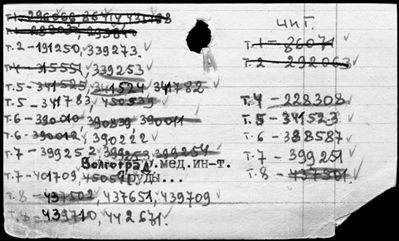 т.2-191250, 339273
т.4-315551, 339253
т.5-341525, 341524 341782
т.5-341783, 450539
т.6-390010 390839, 390011
т.6-390012, 390222
т.7-399252, 399253 399254
Волгоград. мед.ин-т.
Труды...
т.7-401709,
т.8-437502, 437651, 439709
т.8-439710, 442671.
ЧИТ.
т.1-86071
т.2-292063
т.4-228308
т.5-341523
т.6-388587
т.7-399251
т.8-437501